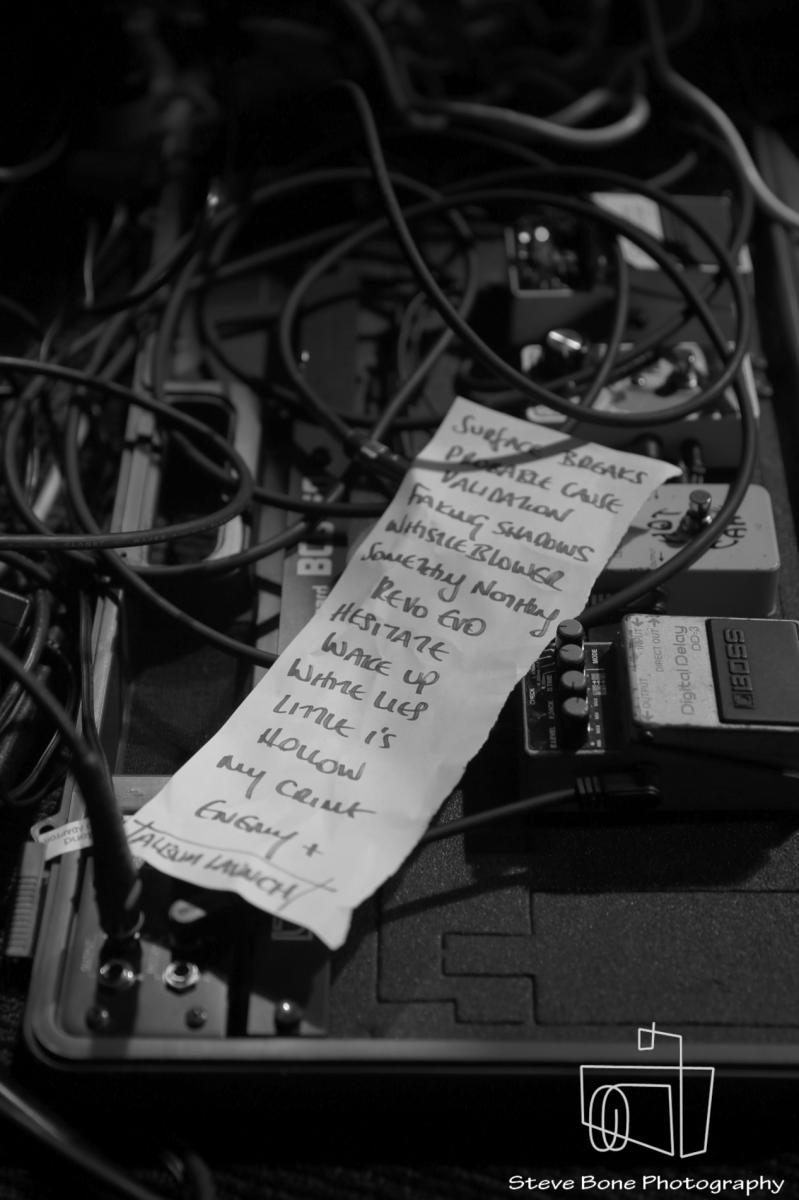 SURFACE BREAKS
PROBABLE CAUSE
VALIDATION
FAKING SHADOWS
WHISTLEBLOWER
SOMETHING NOTHING
REVO EVO
HESITATE
WAKE UP
WHITE LIES
LITTLE i'S
HOLLOW
MY CRIME
ENEMY +
ALBUM LAUNCH
HOT
CAKE
MODE
INPUT
DIRECT OUT
OUTPUT
Digital Delay
DD-3
BOSS
Steve Bone Photography